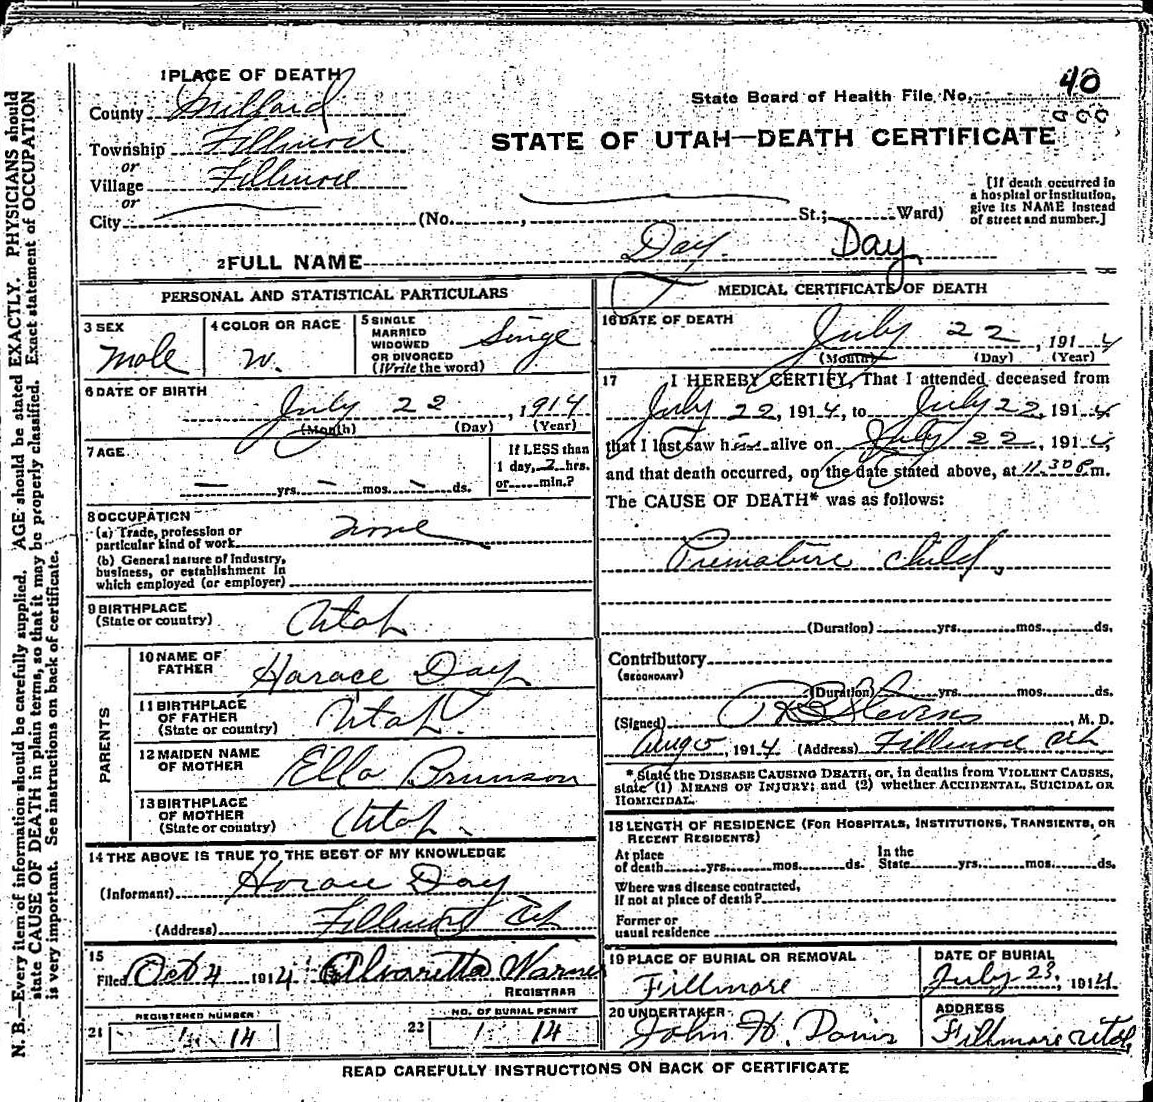 N. B.—Every item of information should be carefully supplied. AGE should be stated EXACTLY. PHYSICIANS should
state CAUSE OF DEATH in plain terms, so that it may be properly classified. Exact statement of OCCUPATION
is very important. See instructions on back of certificate.
1 PLACE OF DEATH
County Millard
Township Fillmore
or
Village Fillmore
or
City (No. , St.; Ward)
State Board of Health File No. 40
STATE OF UTAH—DEATH CERTIFICATE
[If death occurred in
a hospital or institution,
give its NAME instead
of street and number.]
2 FULL NAME Day. Day
PERSONAL AND STATISTICAL PARTICULARS
3 SEX
Male
4 COLOR OR RACE
W.
5 SINGLE
MARRIED
WIDOWED
OR DIVORCED
(Write the word)
Singe
6 DATE OF BIRTH
July 22, 1914
(Month) (Day) (Year)
7 AGE
— yrs. — mos. — ds.
If LESS than
1 day, 2 hrs.
or min.?
8 OCCUPATION
(a) Trade, profession or
particular kind of work None
(b) General nature of industry,
business, or establishment in
which employed (or employer)
9 BIRTHPLACE
(State or country) Utah
PARENTS
10 NAME OF
FATHER Horace Day
11 BIRTHPLACE
OF FATHER
(State or country) Utah
12 MAIDEN NAME
OF MOTHER Ella Brunson
13 BIRTHPLACE
OF MOTHER
(State or country) Utah.
14 THE ABOVE IS TRUE TO THE BEST OF MY KNOWLEDGE
(Informant) Horace Day
(Address) Fillmore Ut
15
Filed Oct 4 1914 Alvaretta Warner
REGISTRAR
REGISTERED NUMBER
21 1 14
NO. OF BURIAL PERMIT
22 1 14
MEDICAL CERTIFICATE OF DEATH
16 DATE OF DEATH
July 22, 1914
(Month) (Day) (Year)
17 I HEREBY CERTIFY, That I attended deceased from
July 22, 1914, to July 22, 1914
that I last saw him alive on July 22, 1914,
and that death occurred, on the date stated above, at 11.30 P.m.
The CAUSE OF DEATH* was as follows:
Premature Child.
(Duration) yrs. mos. ds.
Contributory
(SECONDARY)
(Duration) yrs. mos. ds.
(Signed) Stevens, M. D.
Aug 5, 1914 (Address) Fillmore Ut
* State the DISEASE CAUSING DEATH, or, in deaths from VIOLENT CAUSES,
state (1) MEANS OF INJURY; and (2) whether ACCIDENTAL, SUICIDAL OR
HOMICIDAL.
18 LENGTH OF RESIDENCE (FOR HOSPITALS, INSTITUTIONS, TRANSIENTS, OR
RECENT RESIDENTS)
At place
of death yrs. mos. ds.
In the
State yrs. mos. ds.
Where was disease contracted,
if not at place of death?
Former or
usual residence
19 PLACE OF BURIAL OR REMOVAL
Fillmore
DATE OF BURIAL
July 23, 1914
20 UNDERTAKER
John H. Davis
ADDRESS
Fillmore Utah
READ CAREFULLY INSTRUCTIONS ON BACK OF CERTIFICATE